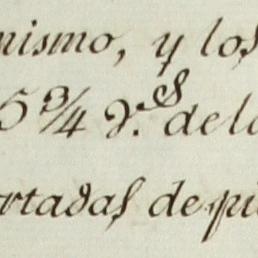 mismo, y los
5 3/4 v.s de la
ortadas de pi